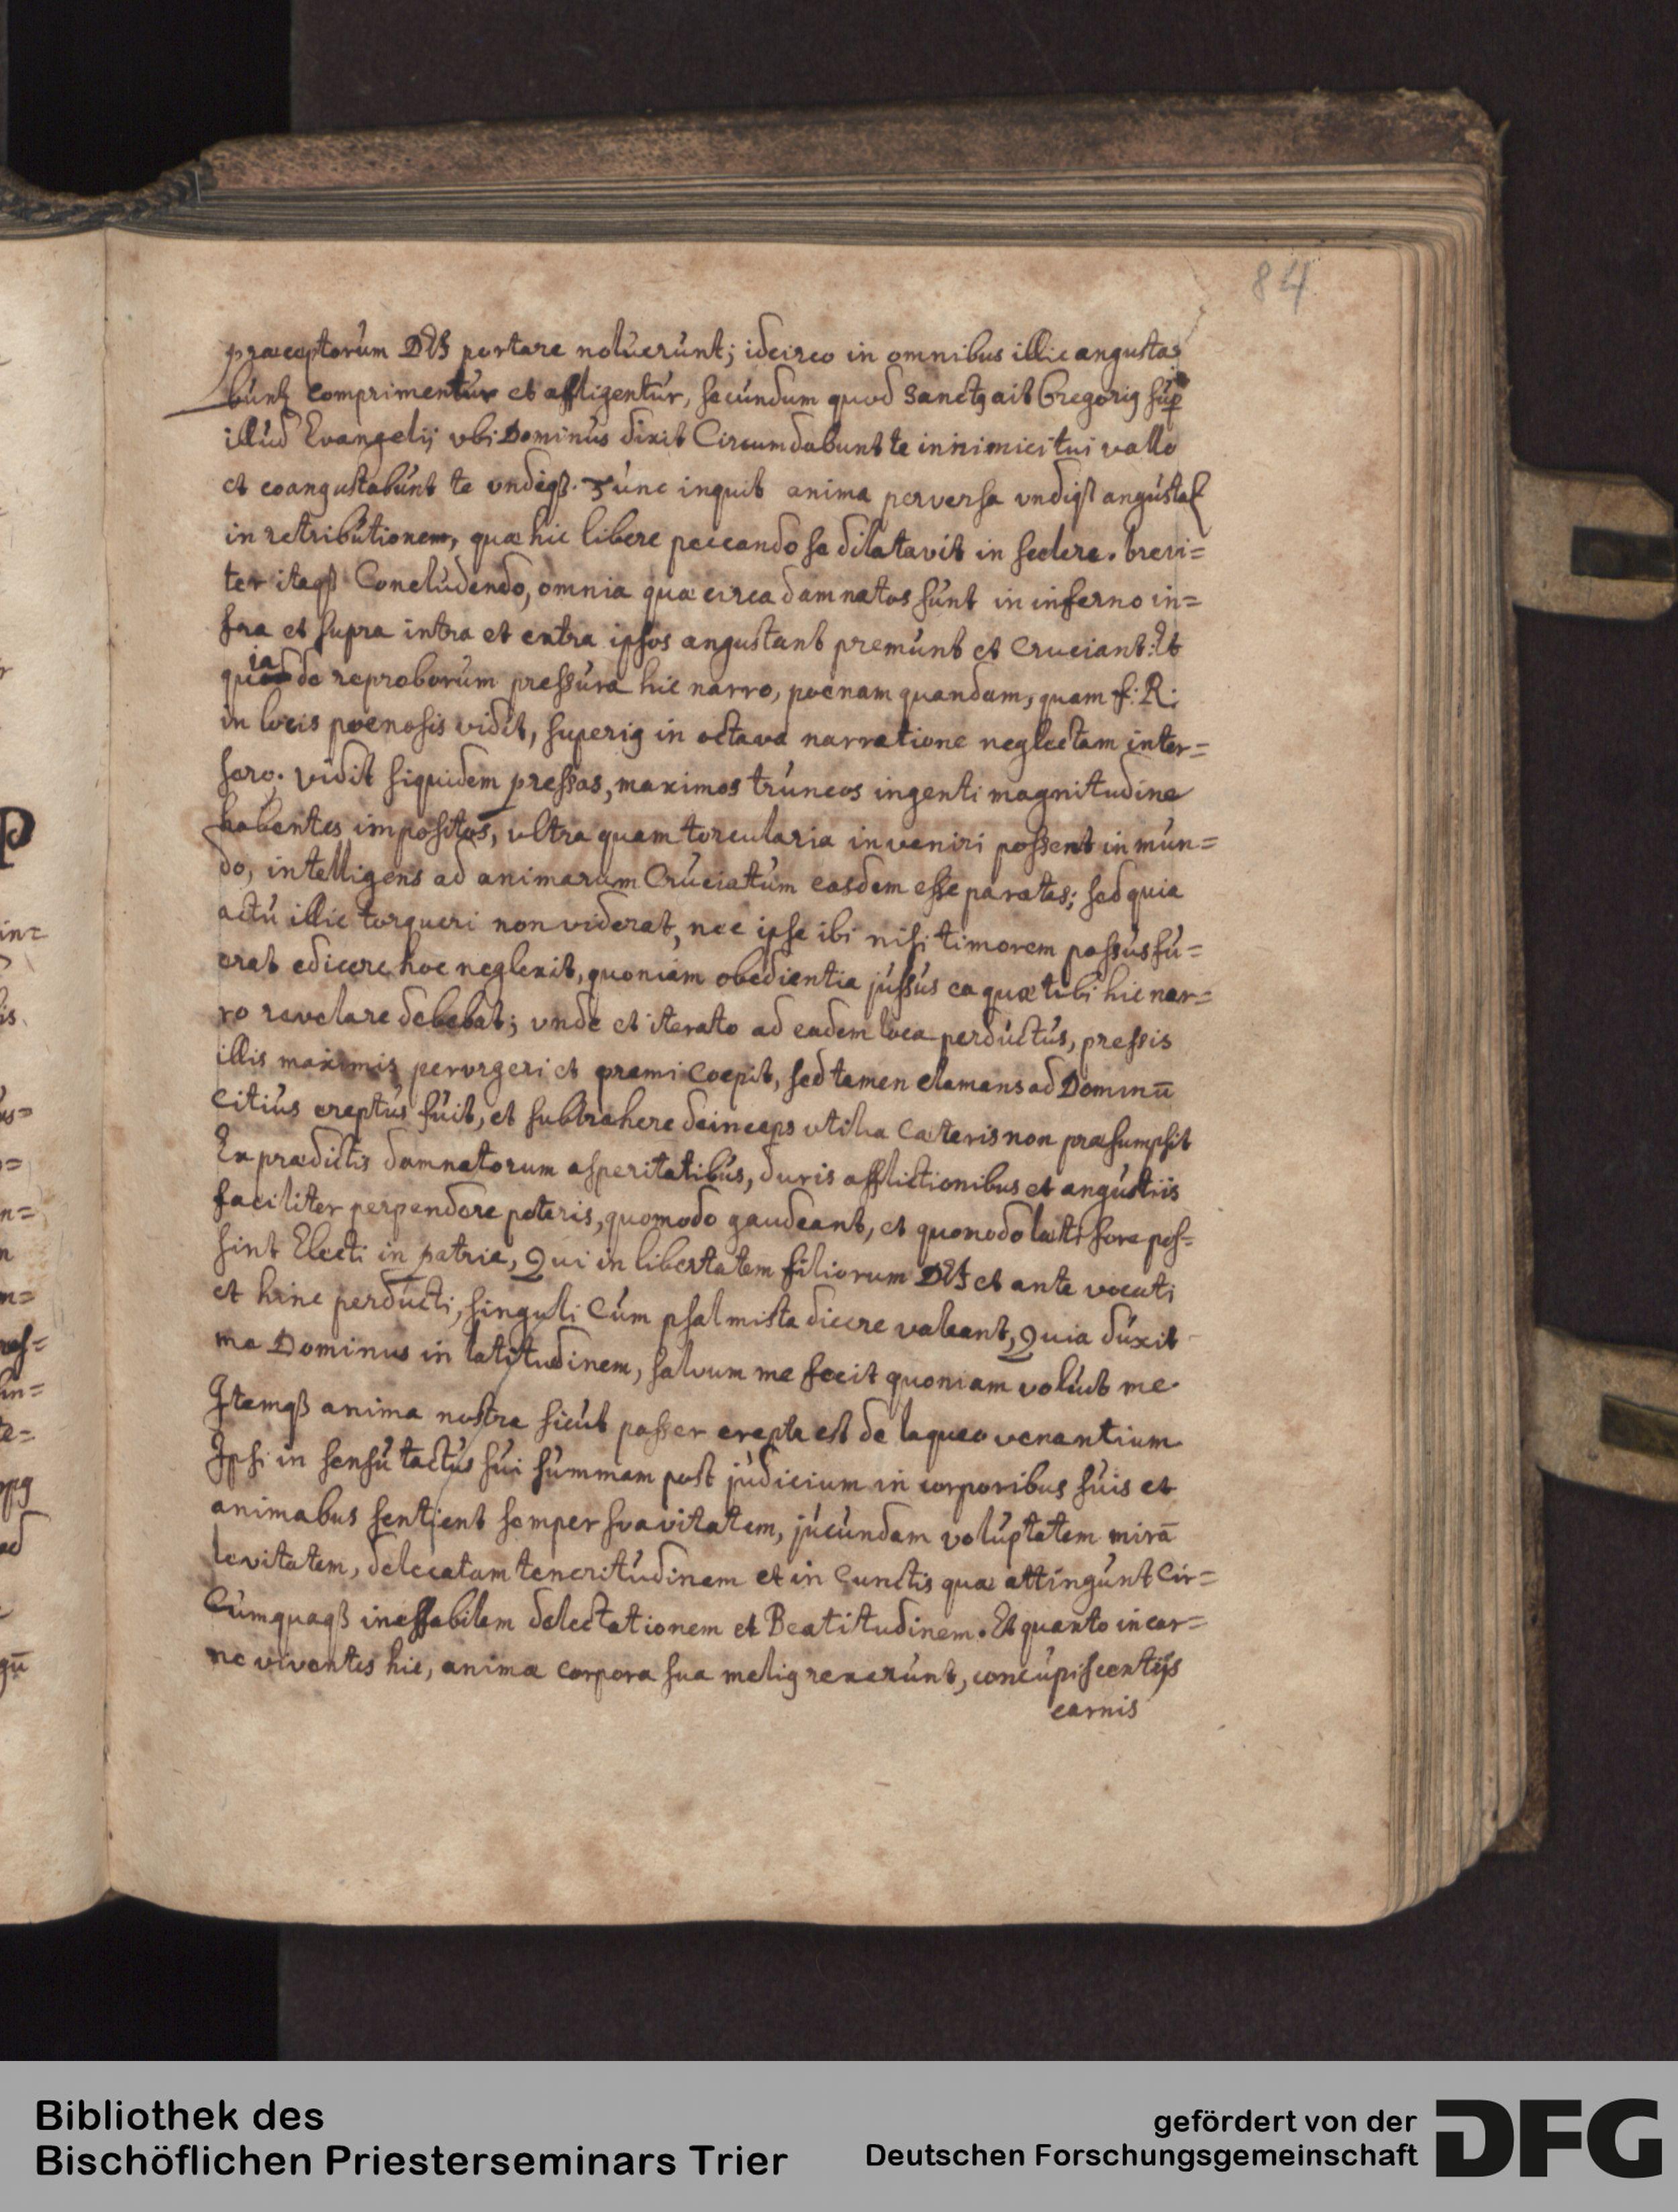 84
præceptorum DEI portare noluerunt; idcirco in omnibus illic angusta=
buntʒ comprimentur et affligentur, secundum quod Sanctꝯ ait Gregoriꝯ sup̄
illud Evangelij vbi Dominus dixit Circumdabunt te innimici tui vallo
et coangustabunt te vndiqꝫ. Tunc inquit anima perversa vndiqꝫ angustaʈ
in retributionem, quæ hic libere peccando se dilatavit in scelere. brevi=
ter itaqꝫ Concludendo, omnia quæ circa damnatos sunt in inferno in=
fra et supra intra et extra ipsos angustant premunt et Cruciant: Et
quia de reproborum pressura hic narro, poenam quandam, quam f: R:
in locis poenosis vidit, superiꝯ in octava narratione neglectam inter=
sero. vidit siquidem pressas, maximos truncos ingenti magnitudine
habentes impositos, vltra quam torcularia inveniri possent in mun=
do, intelligens ad animarum Cruciatum easdem esse paratas; sed quia
actu illic torqueri non viderat, nec ipse ibi nisi timorem passus fu=
erat edicere hoc neglexit, quoniam obedientia jussus ea quæ tibi hic nar=
ro revelare debebat; vnde et iterato ad eadem loca perductus, pressis
illis maximis pervrgeri et premi Coepit, sed tamen clamans ad Dominū
Citius ereptus fuit, et subtrahere deinceps vtilia Cæteris non præsumpsit
Ex prædictis damnatorum asperitatibus, duris afflictionibus et angustiis
faciliter perpendere poteris, quomodo gaudeant, et quonodo læti fore pos=
sint Electi in patria, Qui in libertatem filiorum DEI et ante vocati
et hinc perducti, singuli Cum psalmista dicere valeant, Quia duxit
me Dominus in latitudinem, salvum me fecit quoniam voluit me.
Itemqꝫ anima nostra sicut passer erepta est de laqueo venantium
Ipsi in sensu tactus sui summam post judicium in corporibus suis et
animabus sentient semper svavitatem, jucundam voluptatem mirā
levitatem, delecatam teneritudinem et in Cunctis quæ attingunt Cir=
Cumquaqꝫ ineffabilem delectationem et Beatitudinem. Et quanto in car=
ne viventes hic, animæ corpora sua meliꝯ rexerunt, concupiscentijs
carnis
Bibliothek des
Bischöflichen Priesterseminars Trier
gefördert von der
Deutschen Forschungsgemeinschaft
DFG